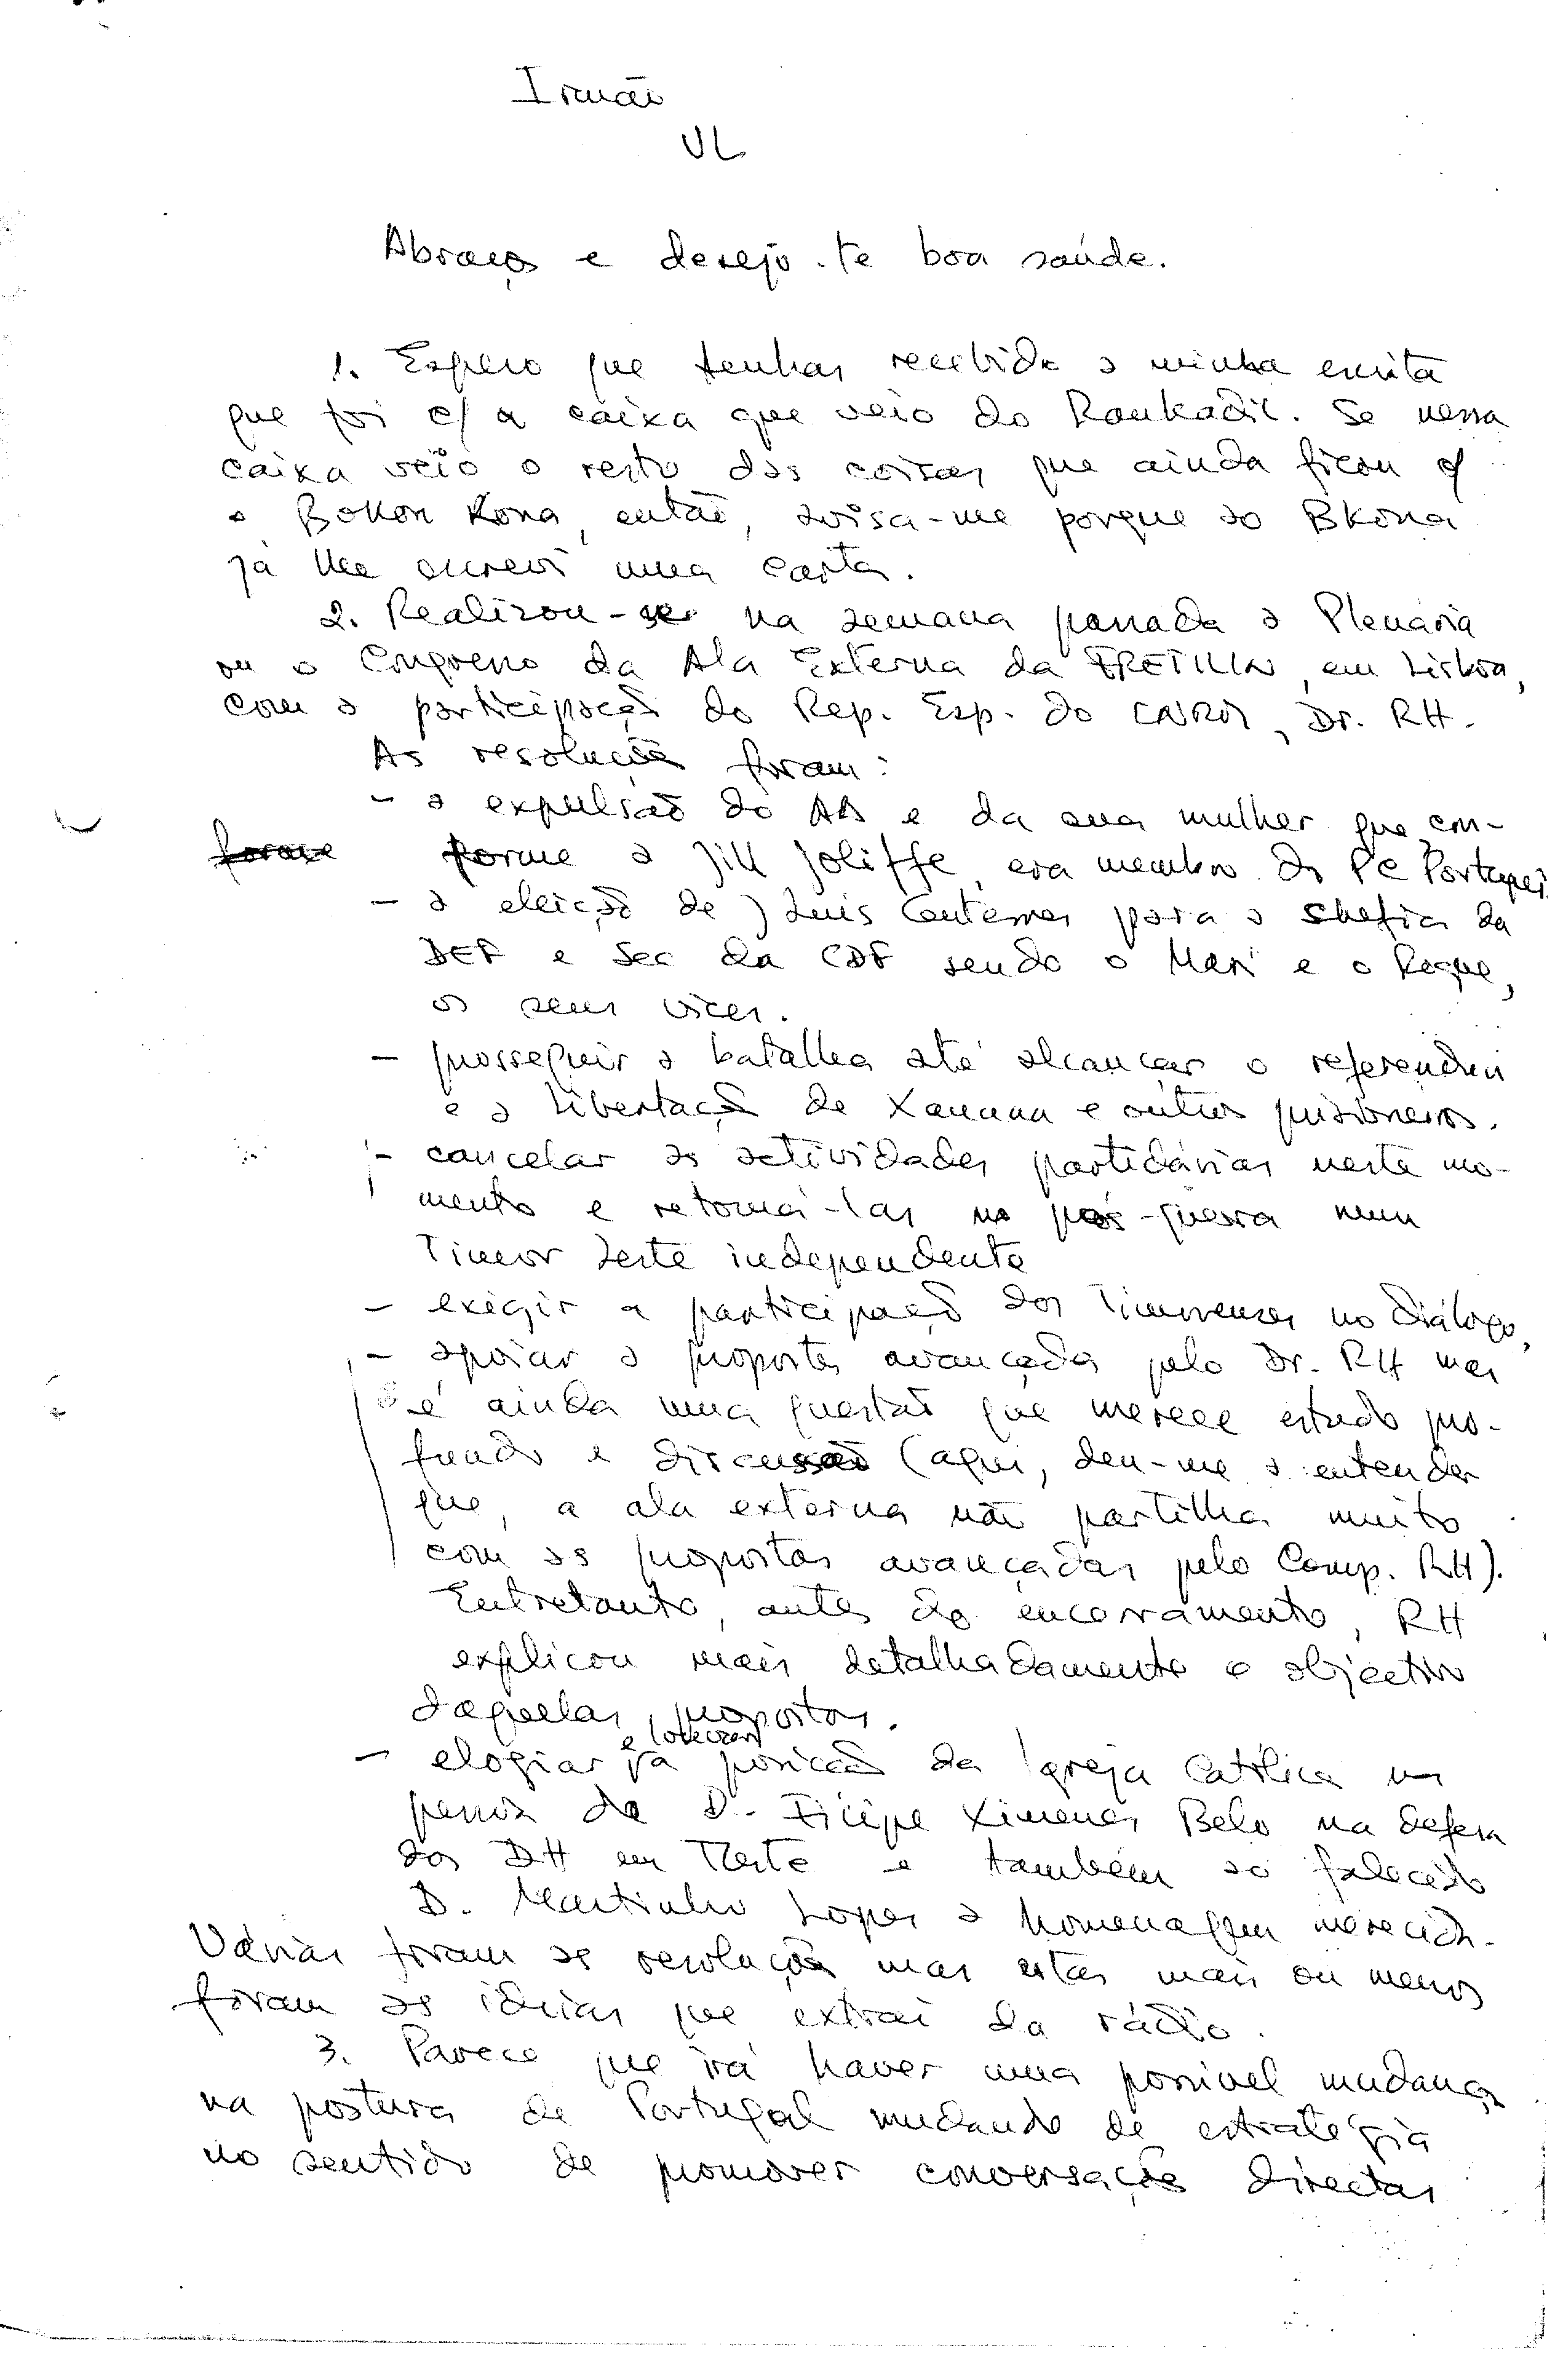 Irmão
UL
Abraços e desejo-te boa saúde.
1. Espero que tenhas recebido a minha escrita
que foi c/ a caixa que veio do Konkadic. Se nessa
caixa veio o resto das coisas que ainda ficou c/
o Bokon Kona, então, avisa-me porque ao BKona
já lhe escrevi uma carta.
2. Realizou-se na semana passada a Plenária
ou o Congresso da Ala Externa da FRETILIN, em Lisboa,
com a participação do Rep. Esp. do CNRM, Dr. RH.
As resoluções foram:
- a expulsão do AA e da sua mulher que con-
forme forme a Jill Joliffe, era membro do PC Português
- a eleição de Luis Guterres para a chefia da
DEF e Sec da CDF sendo o Mari e o Roque,
os seus vices.
- prosseguir a batalha até alcançar o referendum
e a libertação de Xanana e outros prisioneiros.
- cancelar as actividades partidárias neste mo-
mento e retomá-las no pós-guerra num
Timor Leste independente
- exigir a participação dos Timorenses no Diálogo,
- apoiar a proposta avançada pelo Dr. RH mas
é ainda uma questão que merece estudo pro-
fundo e discussão (aqui, deu-me a entender
que, a ala externa não partilha muito
com as propostas avançadas pelo Comp. RH).
Entretanto, antes do encerramento, RH
explicou mais detalhadamente o objectivo
daquelas propostas.
- elogiar e a posição da Igreja Católica na
pessoa de D. Filipe Ximenes Belo na defesa
dos DH em TLeste e também ao falecido
D. Martinho Lopes a homenagem merecida.
Várias foram as resoluções mas estas mais ou menos
foram as ideias que extraí da rádio.
3. Parece que irá haver uma possível mudança
na postura de Portugal mudando de estratégia
no sentido de promover conversações directas